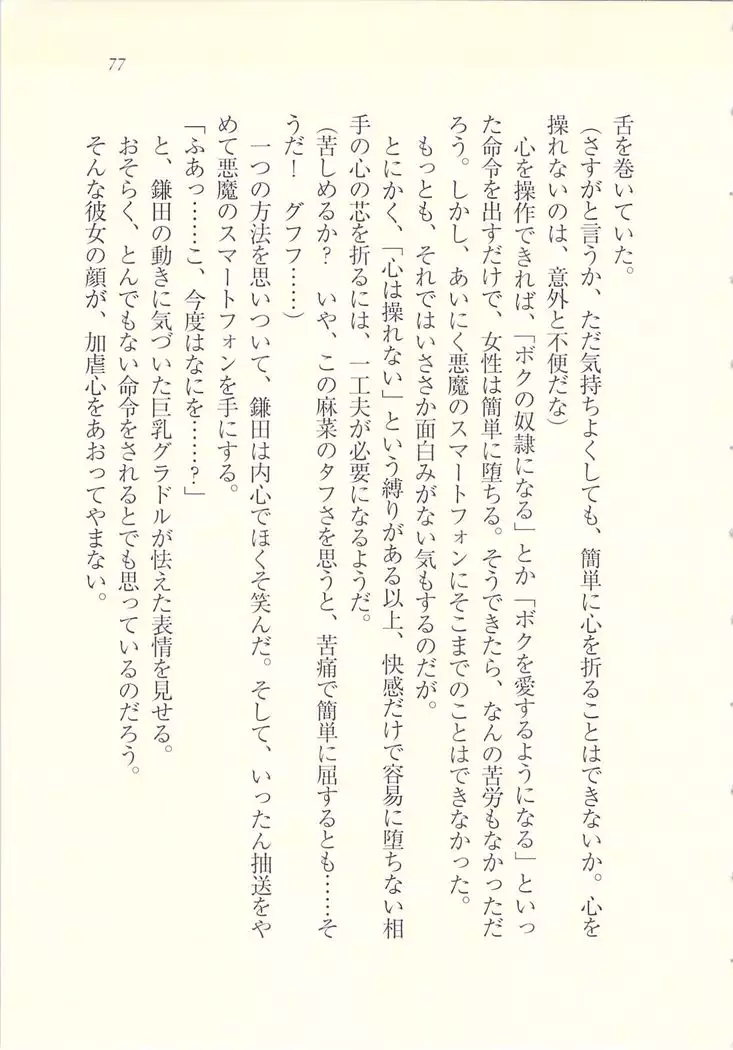 77
舌を巻いていた。
(さすがと言うか、ただ気持ちよくしても、簡単に心を折ることはできないか。心を
操れないのは、意外と不便だな)
心を操作できれば、「ボクの奴隷になる」とか「ボクを愛するようになる」といっ
た命令を出すだけで、女性は簡単に堕ちる。そうできたら、なんの苦労もなかっただ
ろう。しかし、あいにく悪魔のスマートフォンにそこまでのことはできなかった。
もっとも、それではいささか面白みがない気もするのだが。
とにかく、「心は操れない」という縛りがある以上、快感だけで容易に堕ちない相
手の心の芯を折るには、一工夫が必要になるようだ。
(苦しめるか? いや、この麻菜のタフさを思うと、苦痛で簡単に屈するとも……そ
うだ! グフフ……)
一つの方法を思いついて、鎌田は内心でほくそ笑んだ。そして、いったん抽送をや
めて悪魔のスマートフォンを手にする。
「ふあっ……こ、今度はなにを……?」
と、鎌田の動きに気づいた巨乳グラドルが怯えた表情を見せる。
おそらく、とんでもない命令をされるとでも思っているのだろう。
そんな彼女の顔が、加虐心をあおってやまない。